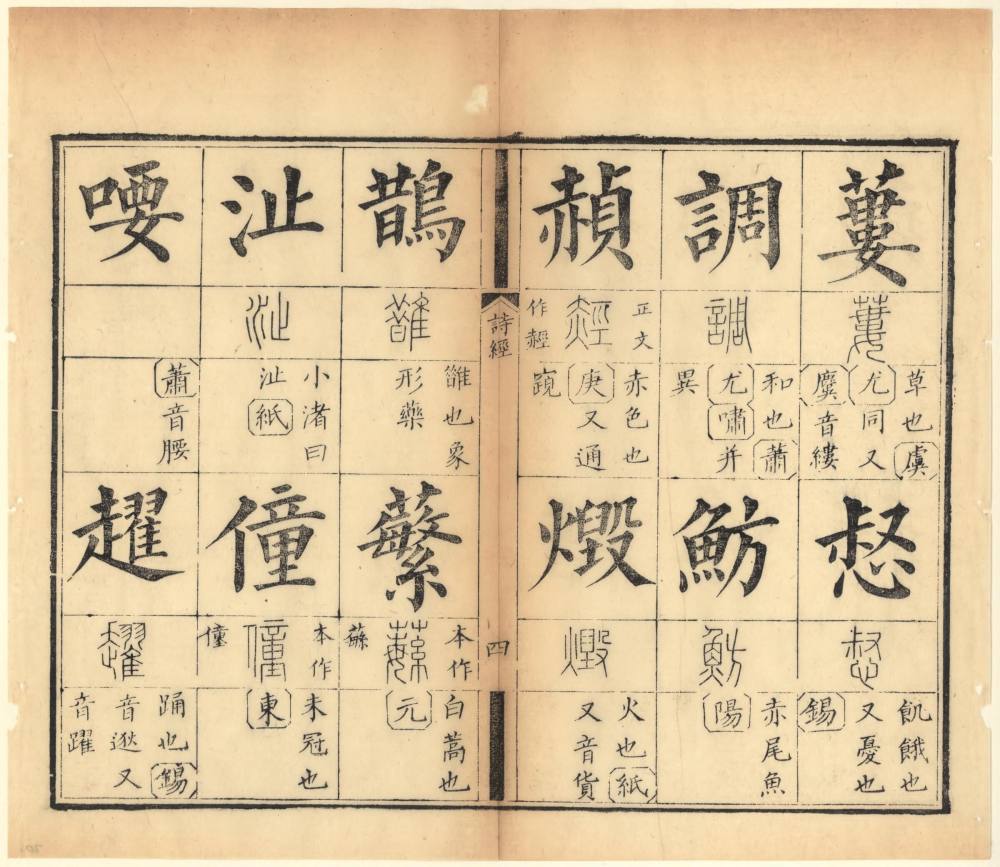 蔞
蔞
草也虞
尤同又
麌音縷
惄
惄
飢餓也
又憂也
錫
調
調
和也蕭
尤嘯并
異
魴
魴
赤尾魚
陽
赬
正文
䞓
作䞓
赤色也
庚又通
燬
燬
火也紙
又音貨
詩經
四
鵲
䧿
䧿也象
形藥
蘩
本作
白蒿也
元
沚
沚
小渚曰
沚紙
僮
本作
僮
僮
未冠也
東
喓
蕭音腰
趯
趯
踊也錫
音逖又
音躍